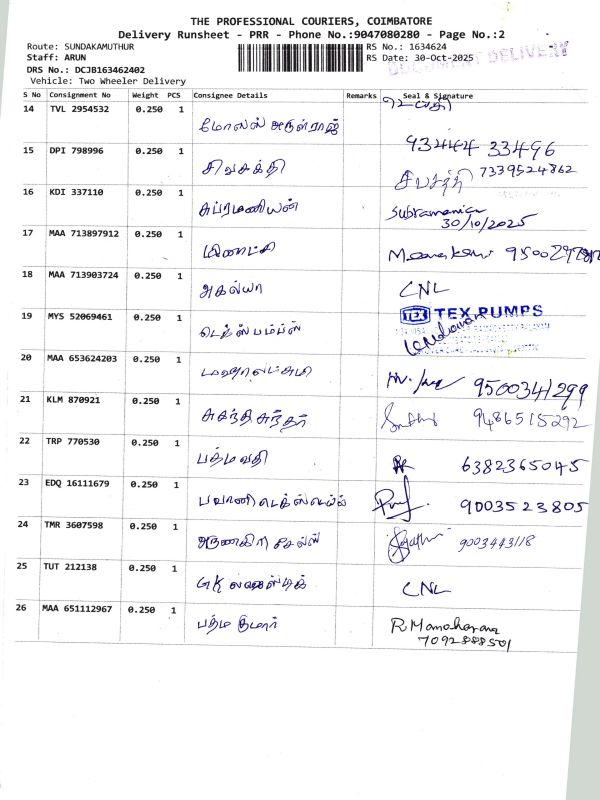 THE PROFESSIONAL COURIERS, COIMBATORE
Delivery Runsheet - PRR - Phone No.:9047080280 - Page No.:2
Route: SUNDAKAMUTHUR RS No.: 1634624
Staff: ARUN RS Date: 30-Oct-2025
DOCUMENT DELIVERY
DRS No.: DCJB163462402
Vehicle: Two Wheeler Delivery
S No Consignment No Weight PCS Consignee Details Remarks Seal & Signature
14 TVL 2954532 0.250 1 மோலஸ் அருள்ராஜ் 93444 33496
15 DPI 798996 0.250 1 சிவசக்தி சிவசக்தி 7339524862
16 KDI 337110 0.250 1 சுப்ரமணியன் Subramanian
30/10/2025
17 MAA 713897912 0.250 1 மீனாட்சி Meenakshi
18 MAA 713903724 0.250 1 அகல்யா CNL
19 MYS 52069461 0.250 1 டெக்ஸ் பம்ப்ஸ் TEX PUMPS
20 MAA 653624203 0.250 1 மஹாலட்சுமி 9500341299
21 KLM 870921 0.250 1 சுகந்தி சுந்தர் 9486515292
22 TRP 770530 0.250 1 பத்மவதி 6382365045
23 EDQ 16111679 0.250 1 பவானி டெக்ஸ்டைல்ஸ் 9003523805
24 TMR 3607598 0.250 1 அருணகிரி சேல்ஸ் 9003443118
25 TUT 212138 0.250 1 GK CNL
26 MAA 651112967 0.250 1 பத்ம குமார் R Manoharan
7092888501